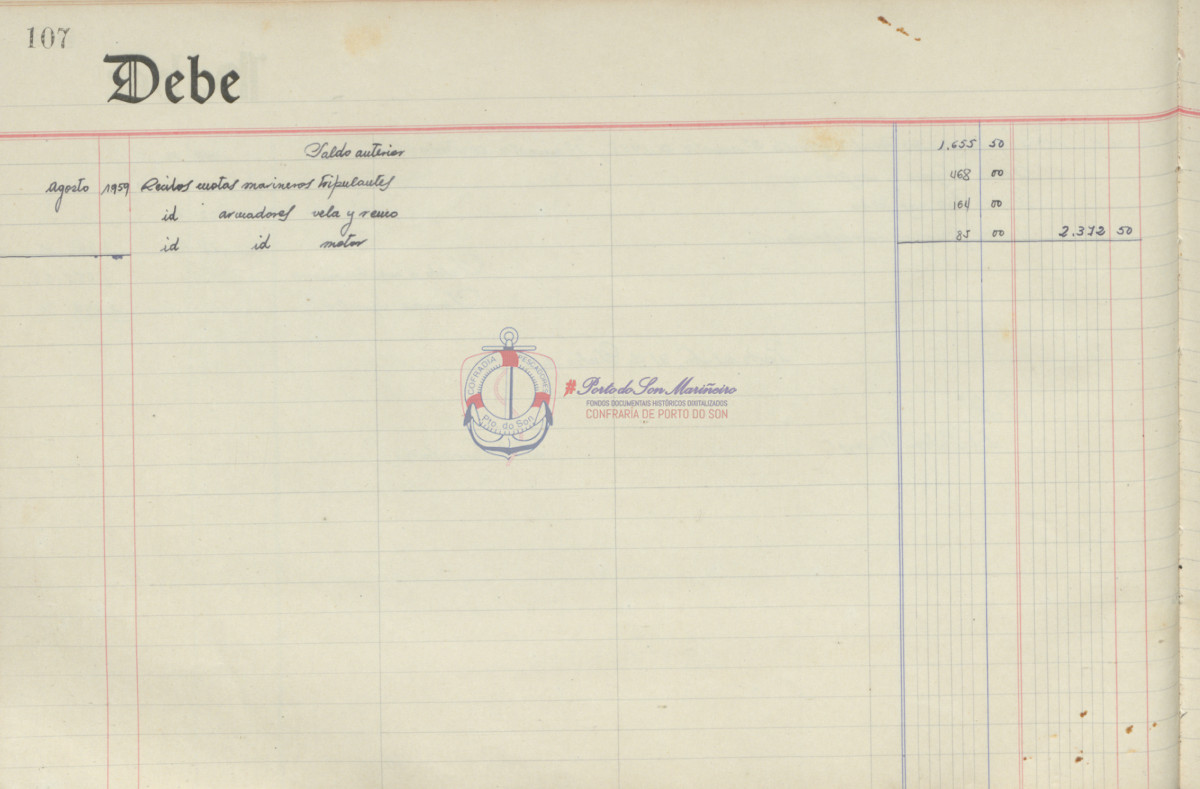 107
Debe
Saldo anterior 1.655 50
Agosto 1959 Recibos cuotas marineros tripulantes 468 00
id armadores vela y remo 164 00
id id motor 85 00 2.372 50
COFRADIA PESCADORES
Pto. do Son
#Porto do Son Mariñeiro
FONDOS DOCUMENTAIS HISTÓRICOS DIXITALIZADOS
CONFRARÍA DE PORTO DO SON